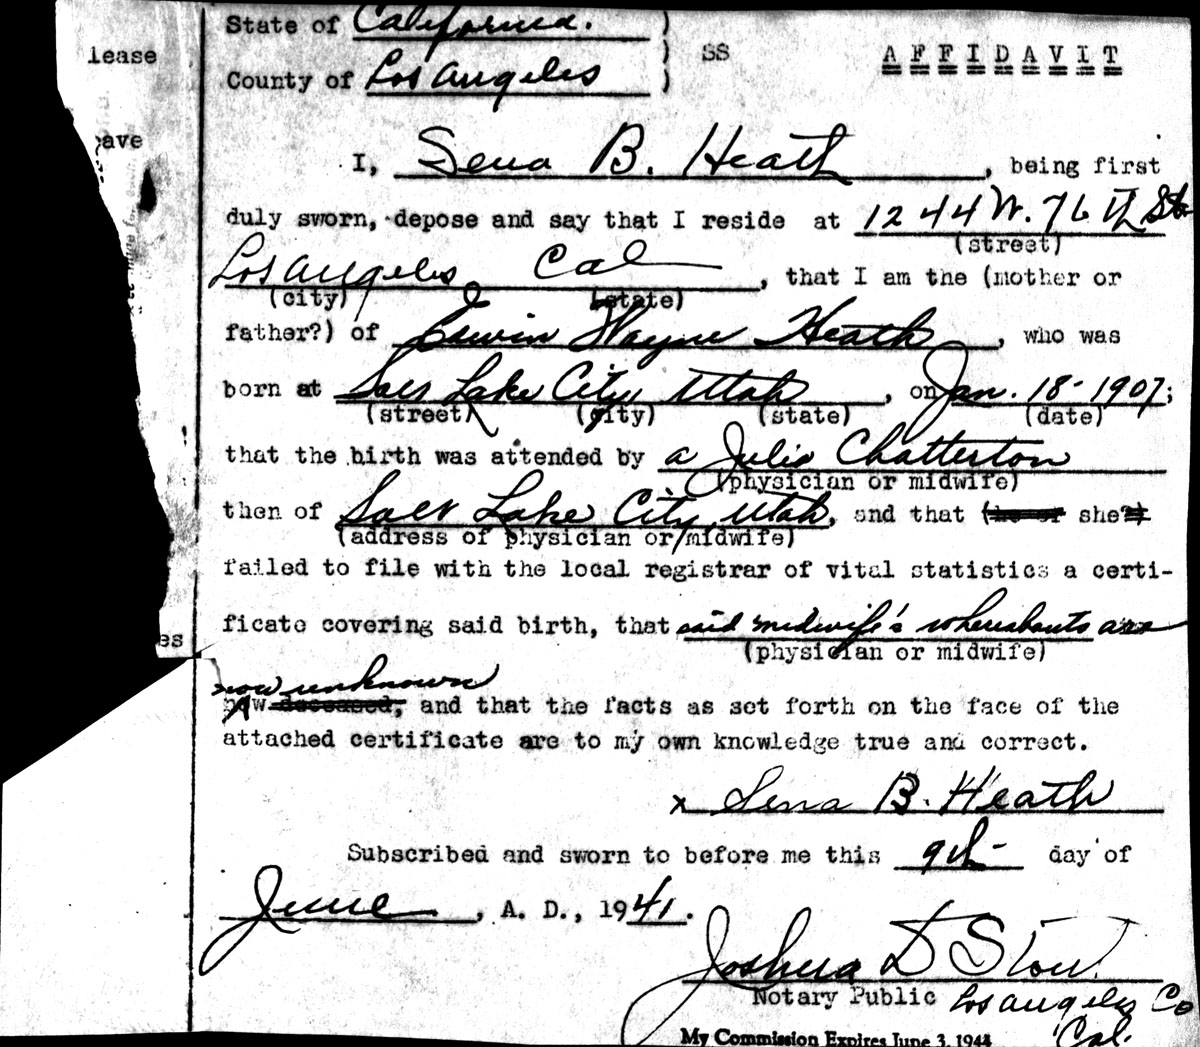 State of California. )
lease
) SS AFFIDAVIT
County of Los Angeles )
eave
I, Sena B. Heath, being first
duly sworn, depose and say that I reside at 1244 W. 76th St.
(street)
Los Angeles Cal, that I am the (mother or
(city) (state)
father?) of Edwin Wayne Heath, who was
born at Salt Lake City Utah, on Jan. 18 - 1907;
(street) (city) (state) (date)
that the birth was attended by a Julia Chatterton
(physician or midwife)
then of Salt Lake City, Utah, and that (he or she?)
(address of physician or midwife)
failed to file with the local registrar of vital statistics a certi-
ficate covering said birth, that said midwife's whereabouts are
es
(physician or midwife)
now unknown
now deceased; and that the facts as set forth on the face of the
attached certificate are to my own knowledge true and correct.
x Sena B. Heath
Subscribed and sworn to before me this 9th day of
June, A. D., 1941.
Joshua D Stow
Notary Public Los Angeles Co
Cal.
My Commission Expires June 3, 1944